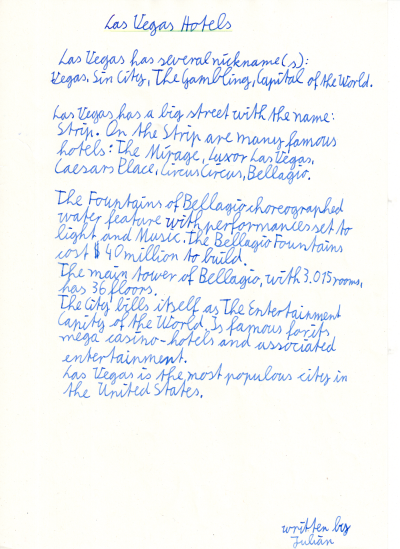 Las Vegas Hotels
Las Vegas has several nickname(s):
Vegas, Sin City, The Gambling, Capital of the World.
Las Vegas has a big street with the name:
Strip. On the Strip are many famous
hotels: The Mirage, Luxor Las Vegas,
Caesars Place, Circus Circus, Bellagio.
The Fountains of Bellagio choreographed
water feature with performances set to
light and Music. The Bellagio Fountains
cost $ 40 million to build.
The main tower of Bellagio, with 3.015 rooms,
has 36 floors.
The City bills itself as The Entertainment
Capity of the World. Is famous for its
mega casino-hotels and associated
entertainment.
Las Vegas is the most populous city in
the United States.
written by
Julian